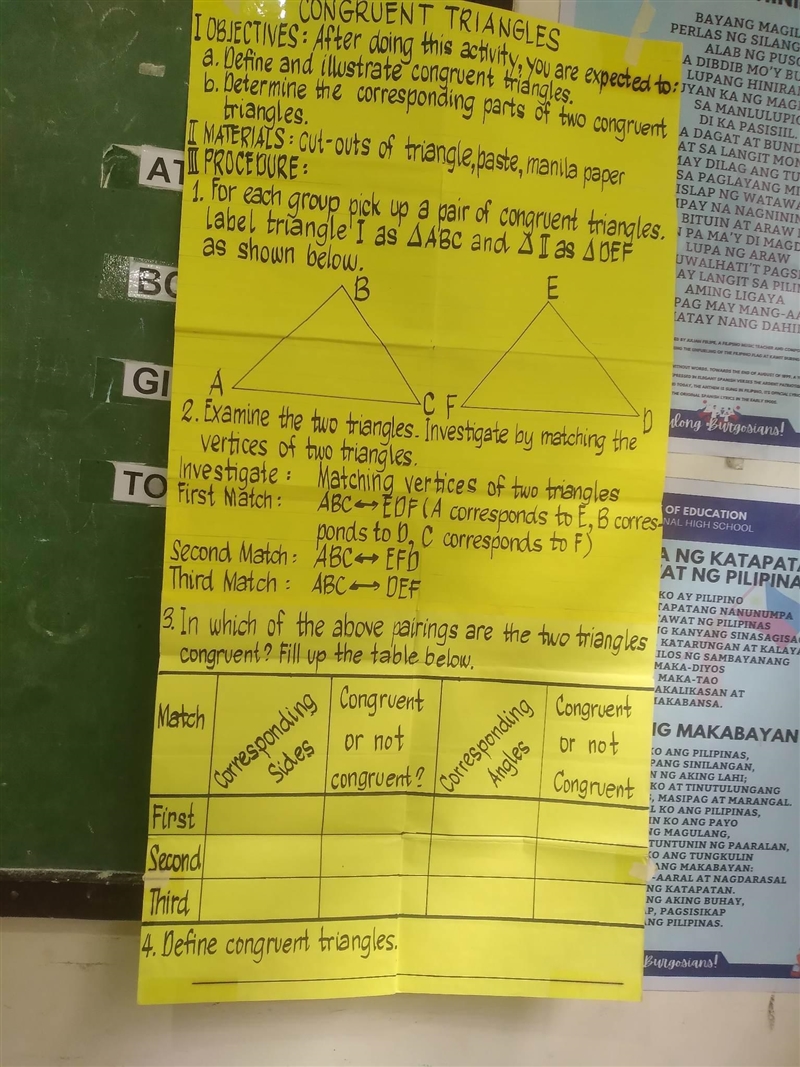 CONGRUENT TRIANGLES
I OBJECTIVES: After doing this activity, you are expected to:
a. Define and illustrate congruent triangles.
b. Determine the corresponding parts of two congruent
triangles.
II MATERIALS: Cut-outs of triangle, paste, manila paper
III PROCEDURE:
1. For each group pick up a pair of congruent triangles.
Label triangle I as △ABC and △ II as △DEF
as shown below.
B
E
A
C
F
D
2. Examine the two triangles. Investigate by matching the
vertices of two triangles.
Investigate: Matching vertices of two triangles
First Match: ABC↔EDF (A corresponds to E, B corres-
ponds to D, C corresponds to F)
Second Match: ABC↔EFD
Third Match: ABC↔DEF
3. In which of the above pairings are the two triangles
congruent? Fill up the table below.
Match
Corresponding Sides
Congruent
or not
congruent?
Corresponding Angles
Congruent
or not
Congruent
First
Second
Third
4. Define congruent triangles.
AT
BO
GI
TO
BAYANG MAGIL
PERLAS NG SILANG
ALAB NG PUSO
A DIBDIB MO'Y BU
LUPANG HINIRAN
UYAN KA NG MAG
SA MANLULUPIG
DI KA PASISIIL.
A DAGAT AT BUND
AT SA LANGIT MON
MAY DILAG ANG TU
SA PAGLAYANG MI
ISLAP NG WATAWA
MPAY NA NAGNININ
BITUIN AT ARAW
N PA MA'Y DI MAGD
LUPA NG ARAW
UWALHATI'T PAGSI
AY LANGIT SA PILI
AMING LIGAYA
PAG MAY MANG-AA
MATAY NANG DAHI
ulong Burgosians!
OF EDUCATION
NAL HIGH SCHOOL
A NG KATAPATA
AT NG PILIPINA
KO AY PILIPINO
TAPATANG NANUNUMPA
TAWAT NG PILIPINAS
NG KANYANG SINASAGISAG
KATARUNGAN AT KALAYA
ILOS NG SAMBAYANANG
MAKA-DIYOS
MAKA-TAO
AKALIKASAN AT
MAKABANSA.
IG MAKABAYAN
KO ANG PILIPINAS,
PANG SINILANGAN,
N NG AKING LAHI;
KO AT TINUTULUNGANG
, MASIPAG AT MARANGAL.
L KO ANG PILIPINAS,
IN KO ANG PAYO
NG MAGULANG,
TUNTUNIN NG PAARALAN,
KO ANG TUNGKULIN
ANG MAKABAYAN:
-AARAL AT NAGDARASAL
NG KATAPATAN.
NG AKING BUHAY,
AP, PAGSISIKAP
ANG PILIPINAS.
Burgosians!